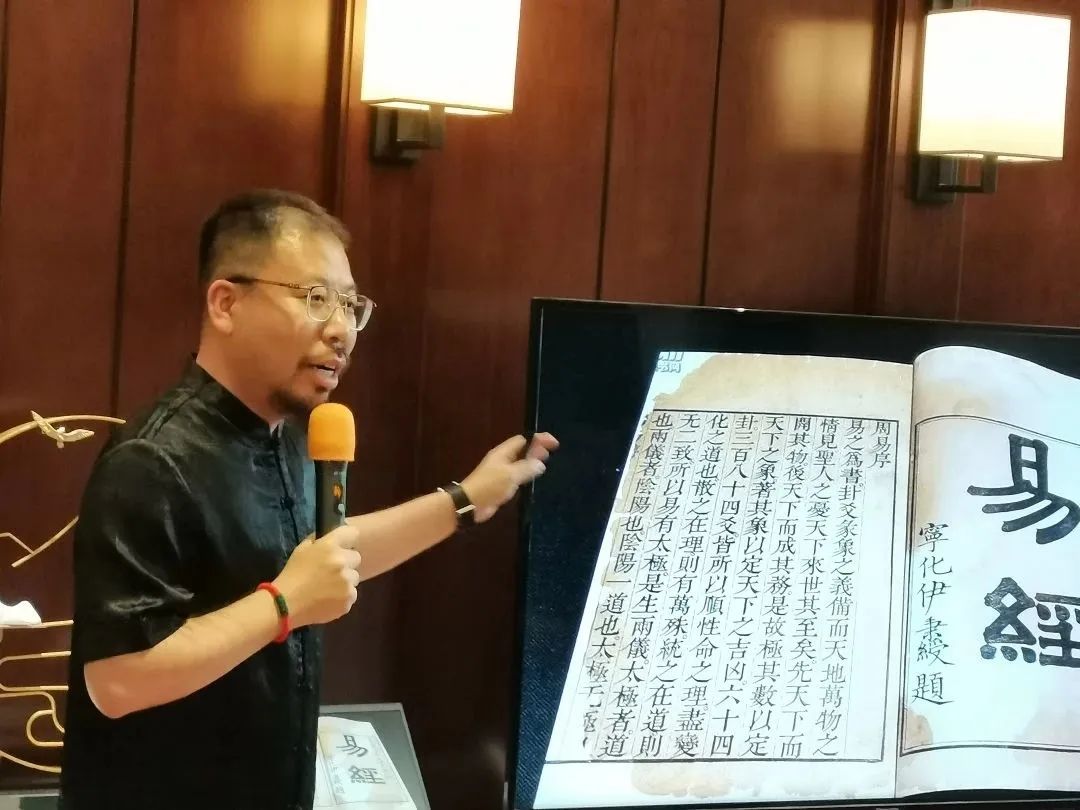 易經
寧化伊秉綬題
周易序
易之爲書卦爻彖象之義備而天地萬物之
情見聖人之憂天下來世其至矣先天下而
開其物後天下而成其務是故極其數以定
天下之象著其象以定天下之吉凶六十四
卦三百八十四爻皆所以順性命之理盡變
化之道也散之在理則有萬殊統之在道則
无二致所以易有太極是生兩儀太極者道
也兩儀者陰陽也陰陽一道也太極无極
易經